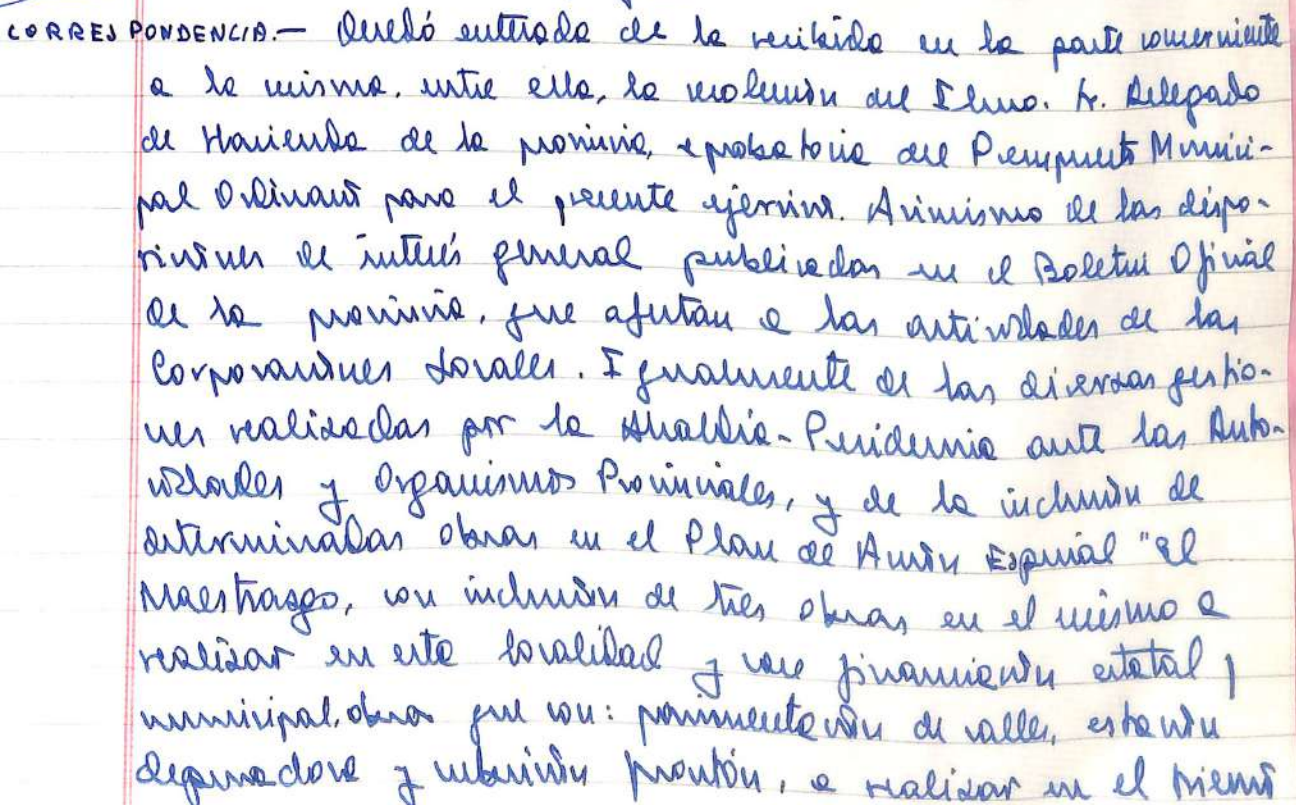 CORRESPONDENCIA.— Quedó enterada de la recibida en la parte concerniente
a la misma, entre ella, la resolución del Ilmo. Sr. Delegado
de Hacienda de la provincia, aprobatoria del Presupuesto Munici-
pal Ordinario para el presente ejercicio. Asimismo de las dispo-
siciones de interés general publicadas en el Boletin Oficial
de la provincia, que afectan a las actividades de las
Corporaciones Locales. Igualmente de las diversas gestio-
nes realizadas por la Alcaldía-Presidencia ante las Auto-
ridades y Organismos Provinciales, y de la inclusión de
determinadas obras en el Plan de Acción Especial "El
Maestrazgo, con inclusión de tres obras en el mismo a
realizar en esta localidad y con financiación estatal y
municipal, obras que son: pavimentación de calles, estación
depuradora y cubrición frontón, a realizar en el trienio